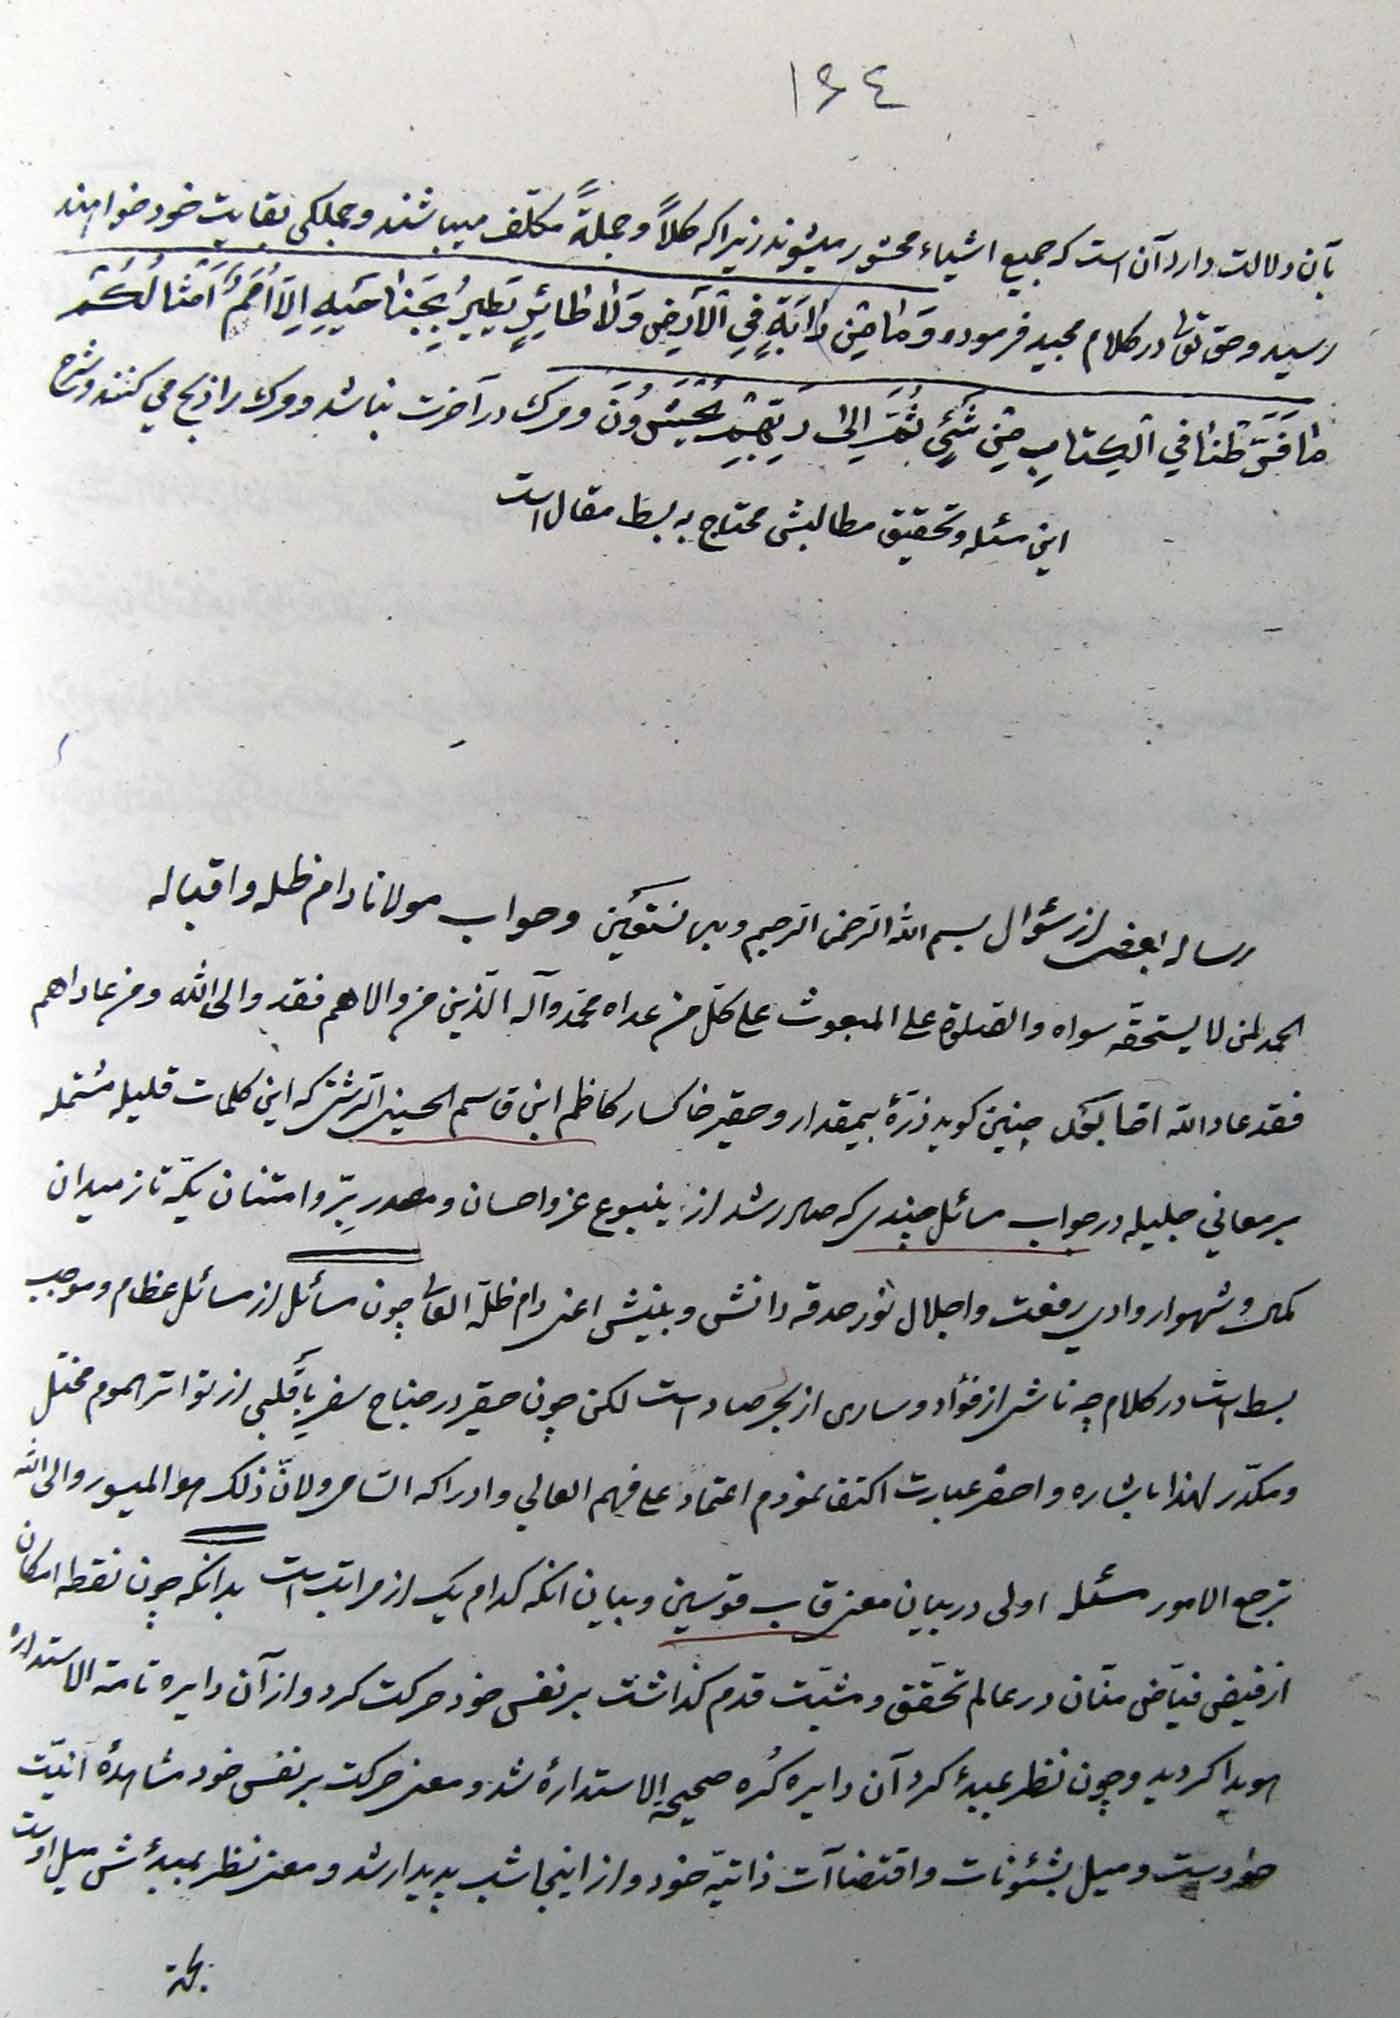 ۱۶٤
بآن دلالت دارد آن است که جمیع اشیاء محشور میشوند زیرا که کلاً و جملةً مکلّف میباشند و جملکی بغایت خود خواهند
رسید و حق تعالی در کلام مجید فرموده وَمٰا مِنْ دٰابَّةٍ فِي الْأَرْضِ وَلٰا طٰائِرٍ يَطِيرُ بِجَنٰاحَيْهِ اِلّٰا اُمَمٌ اَمْثٰالُكُمْ
مٰا فَرَّطْنٰا فِي الْكِتٰابِ مِنْ شَيْءٍ ثُمَّ اِلىٰ رَبِّهِمْ يُحْشَرُونَ و مرک در آخرت نباشد و مرک را ذبح می کنند و شرح
این مسئله و تحقیق مطالبش محتاج به بسط مقال است
رساله بعضی از سؤال بسم الله الرّحمن الرّحیم وبه نستعین و جواب مولانا دام ظله و اقباله
الحمد لمن لا یستحقّه سواه والصّلوة علی المبعوث علی کلّ من عداه محمّد وآله الّذین من والاهم فقد والی الله و من عاداهم
فقد عاد الله امّا بعد چنین کوید ذرّهٔ بیمقدار و حقیر خاکسار کاظم ابن قاسم الحسینی الرشتی که این کلمات قلیله مشتمله
بر معانی جلیله در جواب مسائل چندی که صادر شد از ینبوع عز و احسان و مصدر بِرّ و امتنان یکّه تاز میدان
کمال و شهسوار وادی رفعت و اجلال نور حدقه دانش و بینش اعنی دام ظلّه العالی چون مسائل از مسائل عظام و موجب
بسط است در کلام چه ناشی از فؤاد و ساری از بحر صاد است لکن چون حقیر در جناح سفر با قلبی از تواتر هموم مختل
و مکدّر لهذا باشاره و اخصر عبارت اکتفا نمودم اعتماداً علی فهم العالی و ادراکه السّامی و لانّ ذلک هو المیسور و الی الله
ترجع الامور مسئله اولی در بیان معنی قاب قوسین و بیان انکه کدام یک از مراتب است بدانکه چون نقطه امکان
از فیض فیّاض منّان در عالم تحقّق و مشیّت قدم کذاشت بر نفس خود حرکت کرد و از آن دایره تامّة الاستداره
هویدا کردید و چون نظر بمبدء کرد آن دایره کُره صحیحة الاستدارهٔ شد و معنی حرکت بر نفس خود مشاهدهٔ انیّت
خودست و میل بشئونات و اقتضاآت ذاتیّه خود و از اینجا شب پدیدار شد و معنی نظر بمبدأش میل اوست
بجهة